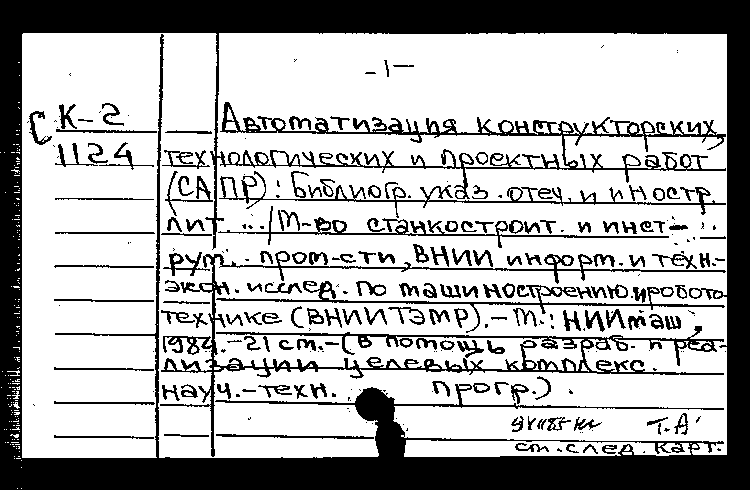 -1-
С К-2
1124
Автоматизация конструкторских,
технологических и проектных работ
(САПР): Библиогр. указ. отеч. и иностр.
лит. ... / М-во станкостроит. и инст-
рум. пром-сти, ВНИИ информ. и техн.-
экон. исслед. по машиностроению и робото-
технике (ВНИИТЭМР). - М.: НИИмаш,
1984. - 21 см. - (В помощь разраб. и реа-
лизации целевых комплекс.
науч.-техн. прогр.).
Т.А
см. след. карт.